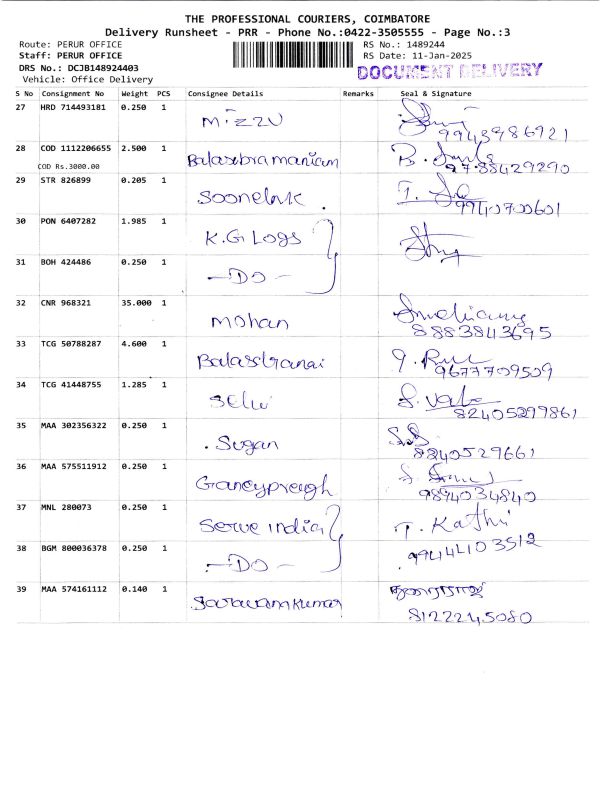 THE PROFESSIONAL COURIERS, COIMBATORE
Delivery Runsheet - PRR - Phone No.:0422-3505555 - Page No.:3
Route: PERUR OFFICE RS No.: 1489244
Staff: PERUR OFFICE RS Date: 11-Jan-2025
DRS No.: DCJB148924403 DOCUMENT DELIVERY
Vehicle: Office Delivery
S No Consignment No Weight PCS Consignee Details Remarks Seal & Signature
27 HRD 714493181 0.250 1
9943986921
28 COD 1112206655 2.500 1
COD Rs.3000.00 Balasubramaniam 9788429290
29 STR 826899 0.205 1
9940700601
30 PON 6407282 1.985 1
K.G Logs
31 BOH 424486 0.250 1
-DO-
32 CNR 968321 35.000 1
mohan 8883843695
33 TCG 50788287 4.600 1
9677709509
34 TCG 41448755 1.285 1
Selvi 82405299861
35 MAA 302356322 0.250 1
Sugan 8240529661
36 MAA 575511912 0.250 1
9894034840
37 MNL 280073 0.250 1
Serve india T. Kathi
38 BGM 800036378 0.250 1
-DO- 9944103512
39 MAA 574161112 0.140 1
Saravanamkumar 8122245080